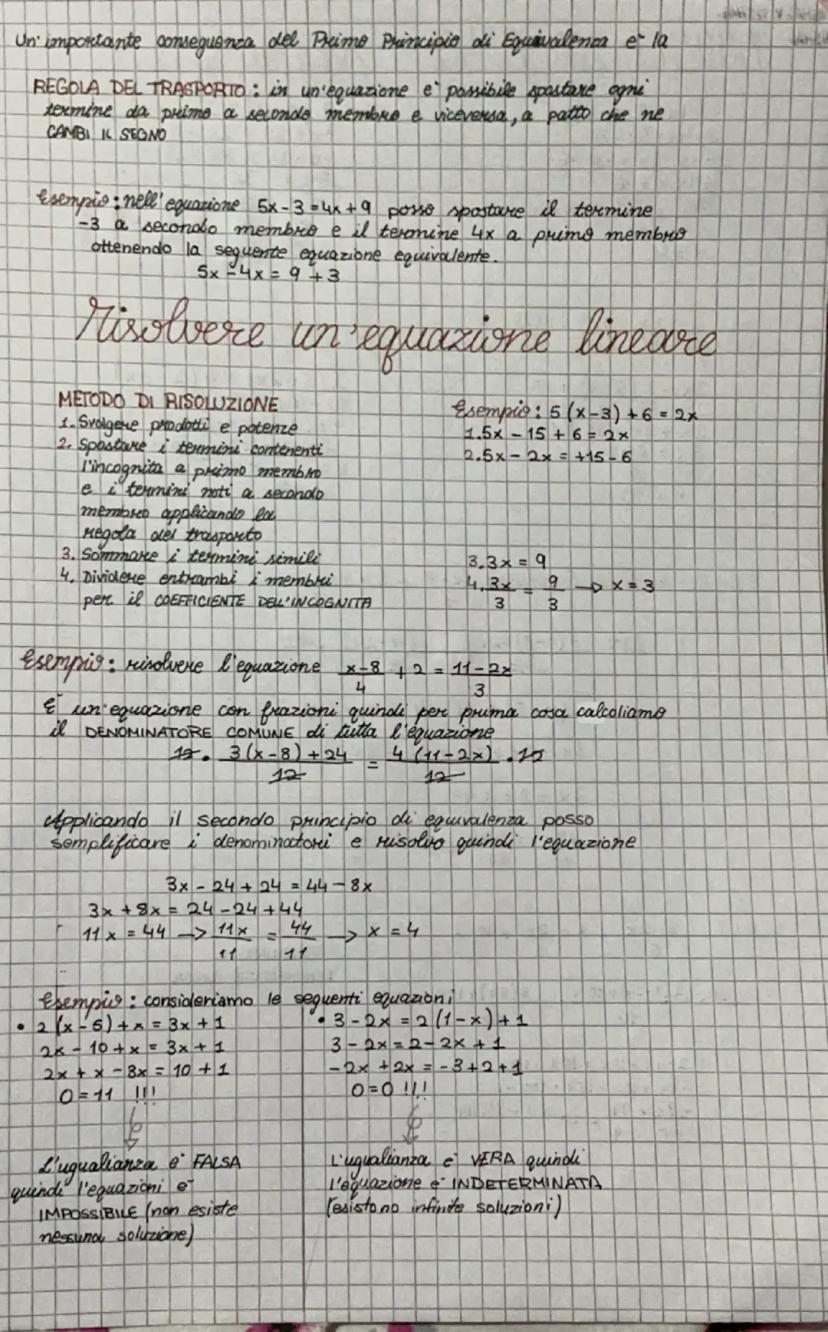 Un'importante conseguenza del Primo Principio di Equivalenza e' la
REGOLA DEL TRASPORTO: in un'equazione e' possibile spostare ogni
termine da primo a secondo membro e viceversa, a patto che ne
CAMBI IL SEGNO
Esempio: nell'equazione 5x-3=4x+9 posso spostare il termine
-3 a secondo membro e il termine 4x a primo membro
ottenendo la seguente equazione equivalente.
5x-4x=9+3
Risolvere un'equazione lineare
METODO DI RISOLUZIONE
1. Svolgere prodotti e potenze
2. Spostare i termini contenenti
l'incognita a primo membro
e i termini noti a secondo
membro applicando la
regola del trasporto
3. Sommare i termini simili
4. Dividere entrambi i membri
per il COEFFICIENTE DELL'INCOGNITA
Esempio: 5(x-3)+6=2x
1. 5x-15+6=2x
2. 5x-2x=+15-6
3. 3x=9
4. 3x/3 = 9/3 → x=3
Esempio: risolvere l'equazione x-8/4 + 2 = 11-2x/3
E' un'equazione con frazioni quindi per prima cosa calcoliamo
il DENOMINATORE COMUNE di tutta l'equazione
12 · 3(x-8)+24/12 = 4(11-2x)/12 · 12
Applicando il secondo principio di equivalenza posso
semplificare i denominatori e risolvo quindi l'equazione
3x-24+24=44-8x
3x+8x=24-24+44
11x=44 → 11x/11 = 44/11 → x=4
Esempio: consideriamo le seguenti equazioni
• 2(x-5)+x=3x+1
2x-10+x=3x+1
2x+x-3x=10+1
0=11 !!!
L'ugualianza e' FALSA
quindi l'equazioni e'
IMPOSSIBILE (non esiste
nessuna soluzione)
• 3-2x=2(1-x)+1
3-2x=2-2x+1
-2x+2x=-3+2+1
0=0 !!!
L'ugualianza e' VERA quindi
l'equazione e' INDETERMINATA
(esistono infinite soluzioni)